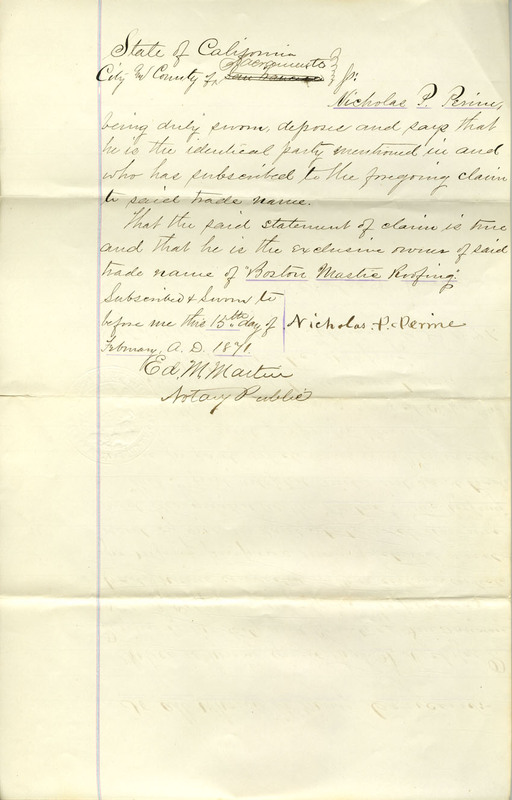 State of California
Sacramento
City & County of San Francisco } ss.
Nicholas P. Perine,
being duly sworn, deposes and says that
he is the identical party mentioned in and
who has subscribed to the foregoing claim
to said trade name.
That the said statement of claim is true
and that he is the exclusive owner of said
trade name of "Boston Mastic Roofing"
Subscribed & Sworn to
before me this 15th day of
February, A. D. 1871.
Nicholas. P. Perine
Ed. M. Martin
Notary Public